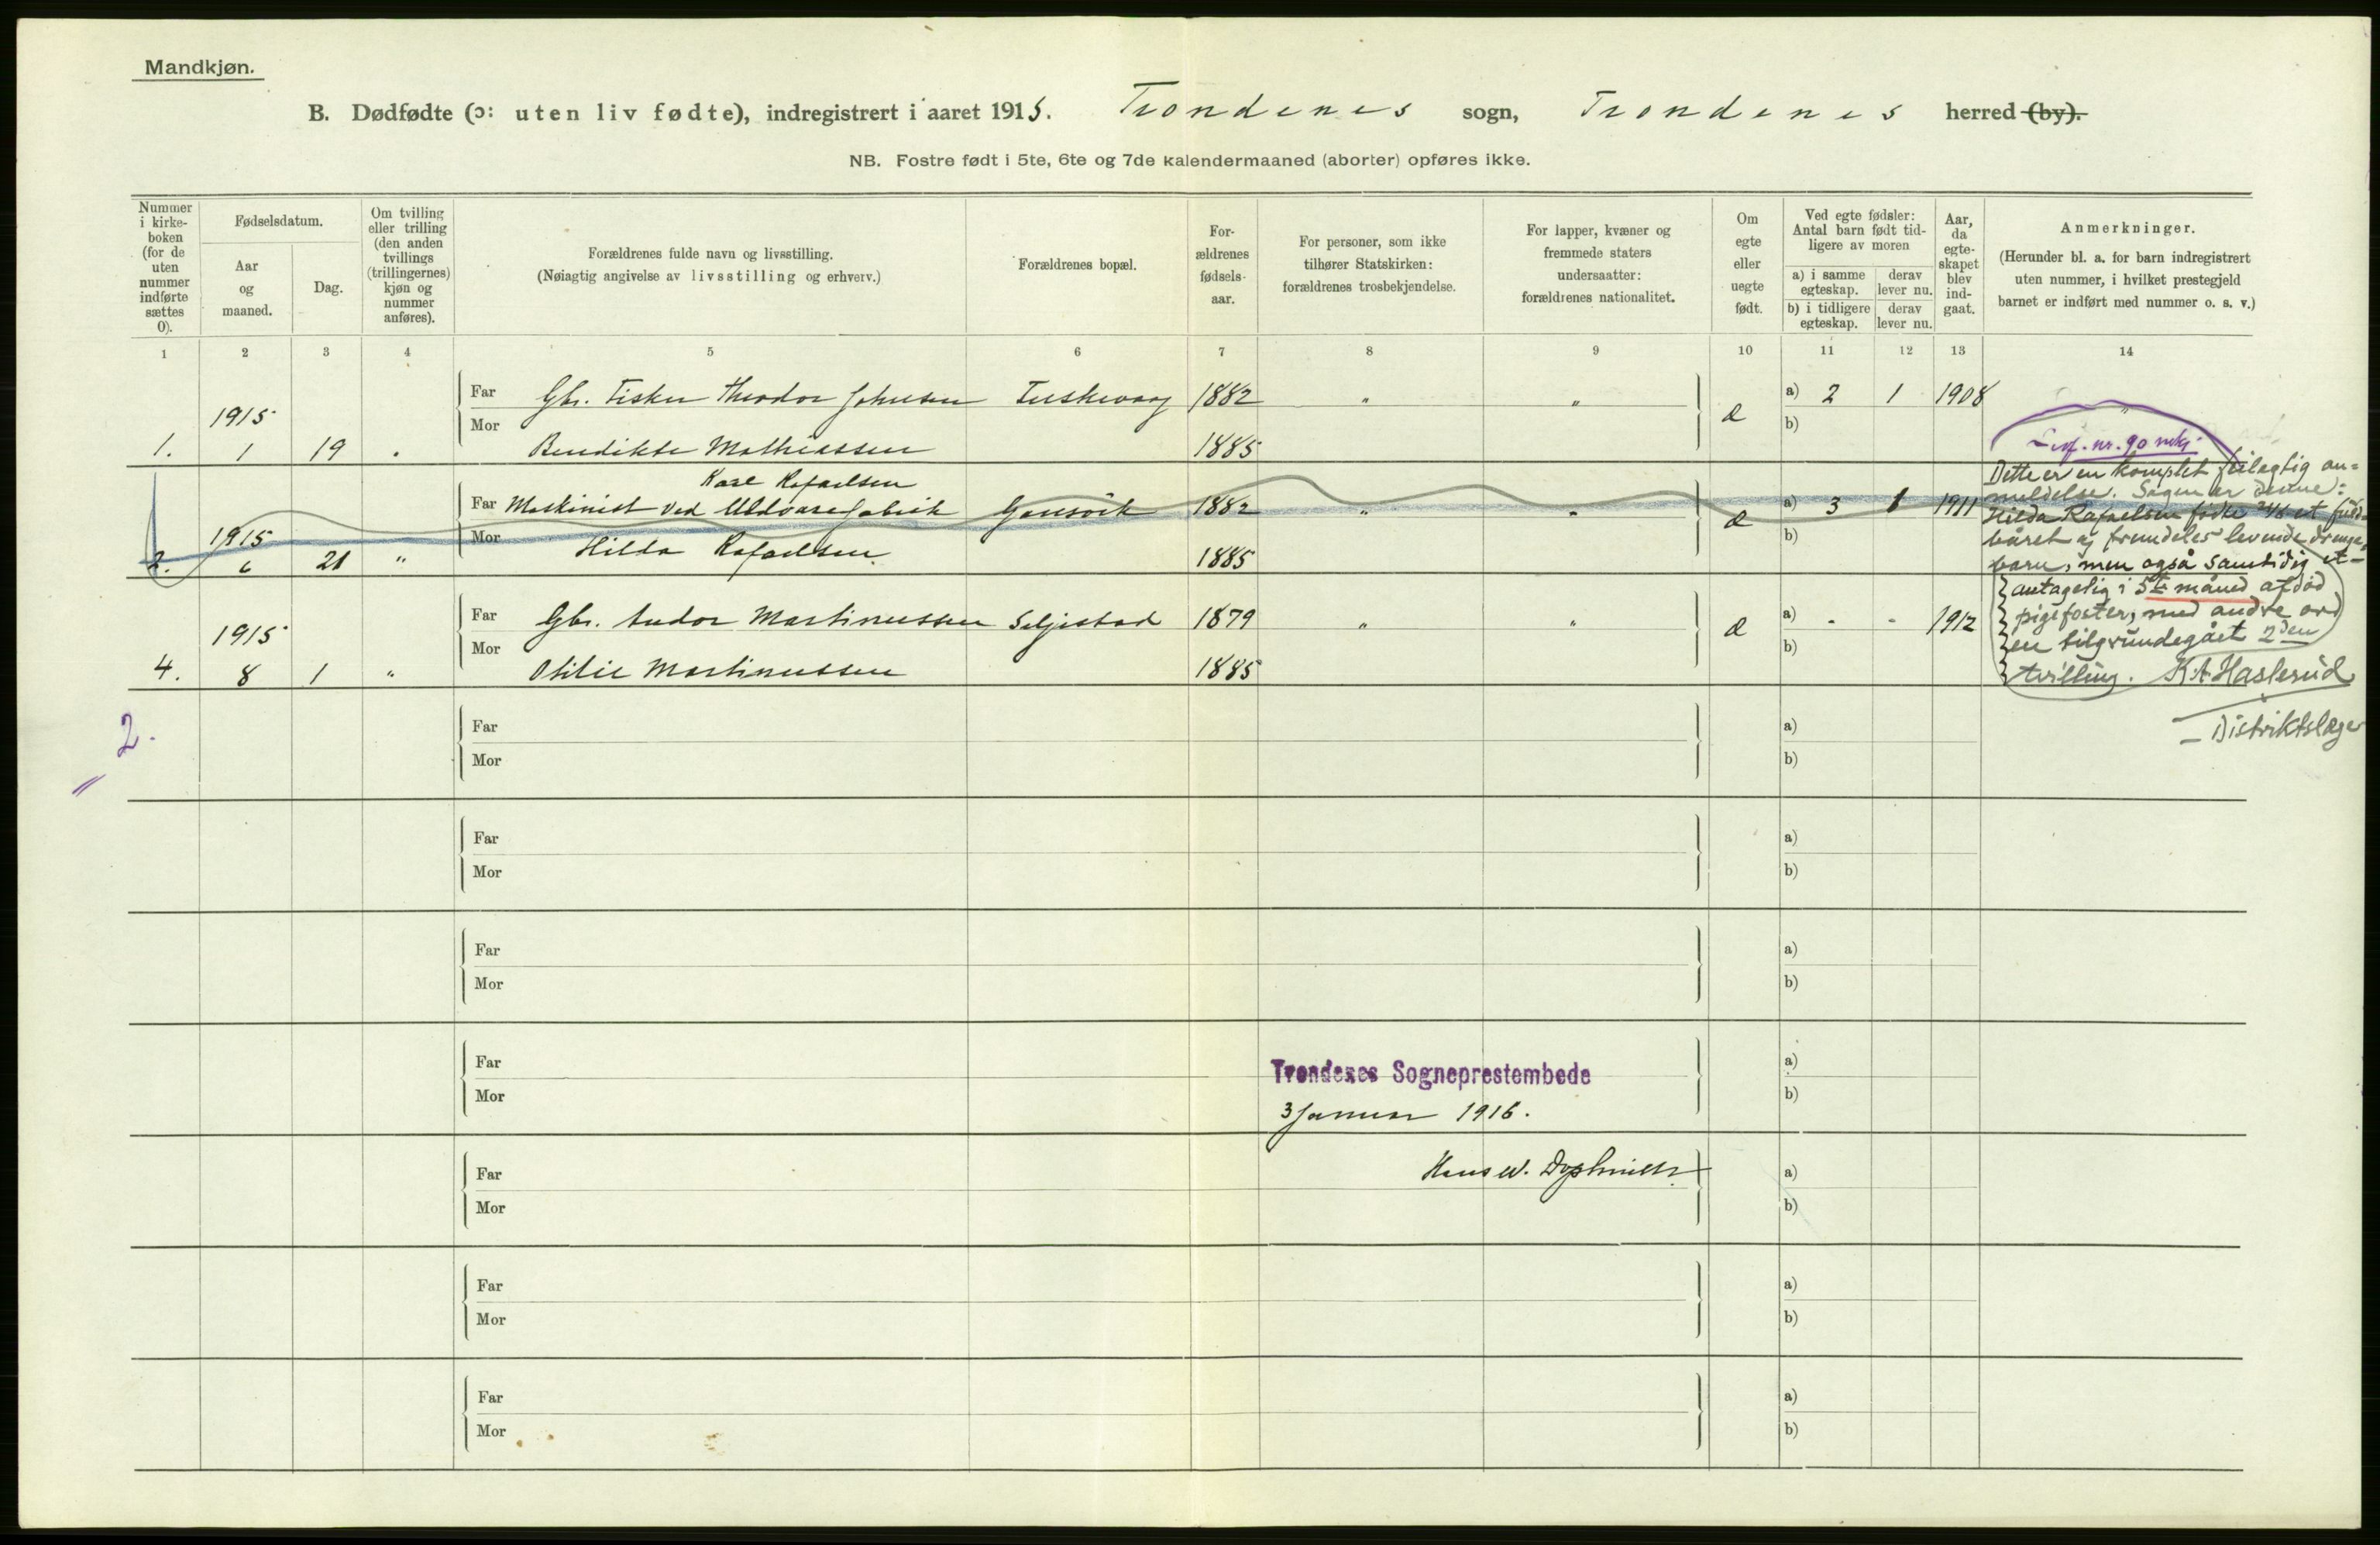 Mandkjøn.
B. Dødfødte (ɔ: uten liv fødte), indregistrert i aaret 1915. Trondenes sogn, Trondenes herred (by).
NB. Fostre født i 5te, 6te og 7de kalendermaaned (aborter) opføres ikke.
Nummer i kirke-boken (for de uten nummer indførte sættes 0).
Fødselsdatum.
Aar og maaned.
Dag.
Om tvilling eller trilling (den anden tvillings (trillingernes) kjøn og nummer anføres).
Forældrenes fulde navn og livsstilling.
(Nøiagtig angivelse av livsstilling og erhverv.)
Forældrenes bopæl.
For-ældrenes fødsels-aar.
For personer, som ikke tilhører Statskirken: forældrenes trosbekjendelse.
For lapper, kvæner og fremmede staters undersaatter: forældrenes nationalitet.
Om egte eller uegte født.
Ved egte fødsler: Antal barn født tid-ligere av moren
a) i samme egteskap. derav lever nu.
b) i tidligere egteskap. derav lever nu.
Aar, da egte-skapet blev ind-gaat.
Anmerkninger.
(Herunder bl. a. for barn indregistrert uten nummer, i hvilket prestegjeld barnet er indført med nummer o. s. v.)
1 2 3 4 5 6 7 8 9 10 11 12 13 14
Far Gbr. Fisker Theodor Johnsen 1882 " " a) 2 1 1908
1915 Mor b)
1. 1 19 Bendikte Mathiassen 1885
Karl Rafaelsen
Far Maskinist ved Uldvarefabrik Gansvik 1882 " " a) 3 1 1911
1915 Mor b)
2. 6 21 " Hilda Rafaelsen. 1885
Far Gbr. Andor Martinussen Seljestad 1879 " " a) - - 1912
1915 Mor b)
4. 8 1 " Otilie Martinussen 1885
Dette er en komplet feilagtig an=
meldelse. Sagen er denne:
Hilda Rafaelsen fødte 21/6 et fuld-
båret og fremdeles levende drenge-
barn, men også samtidig et
antagelig i 5te måned afdød
pigefoster, med andre ord
en tilgrundegået 2den
tvilling. K. A. Haslerud
Distriktslæge
2.
Far a)
Mor b)
Far a)
Mor b)
Far a)
Mor b)
Far a)
Mor b)
Trondenes Sogneprestembede
3 Januar 1916.
Far a)
Mor b)
Hans W.
Far a)
Mor b)
Far a)
Mor b)